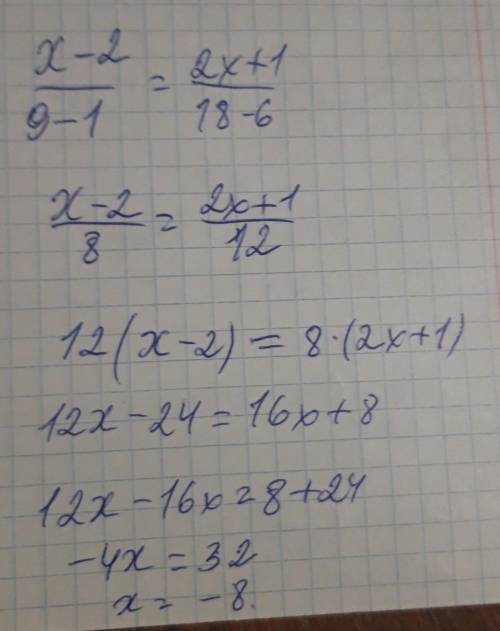 x-2/9-1 = 2x+1/18-6
x-2/8 = 2x+1/12
12(x-2) = 8·(2x+1)
12x-24=16x+8
12x-16x=8+24
-4x=32
x=-8.